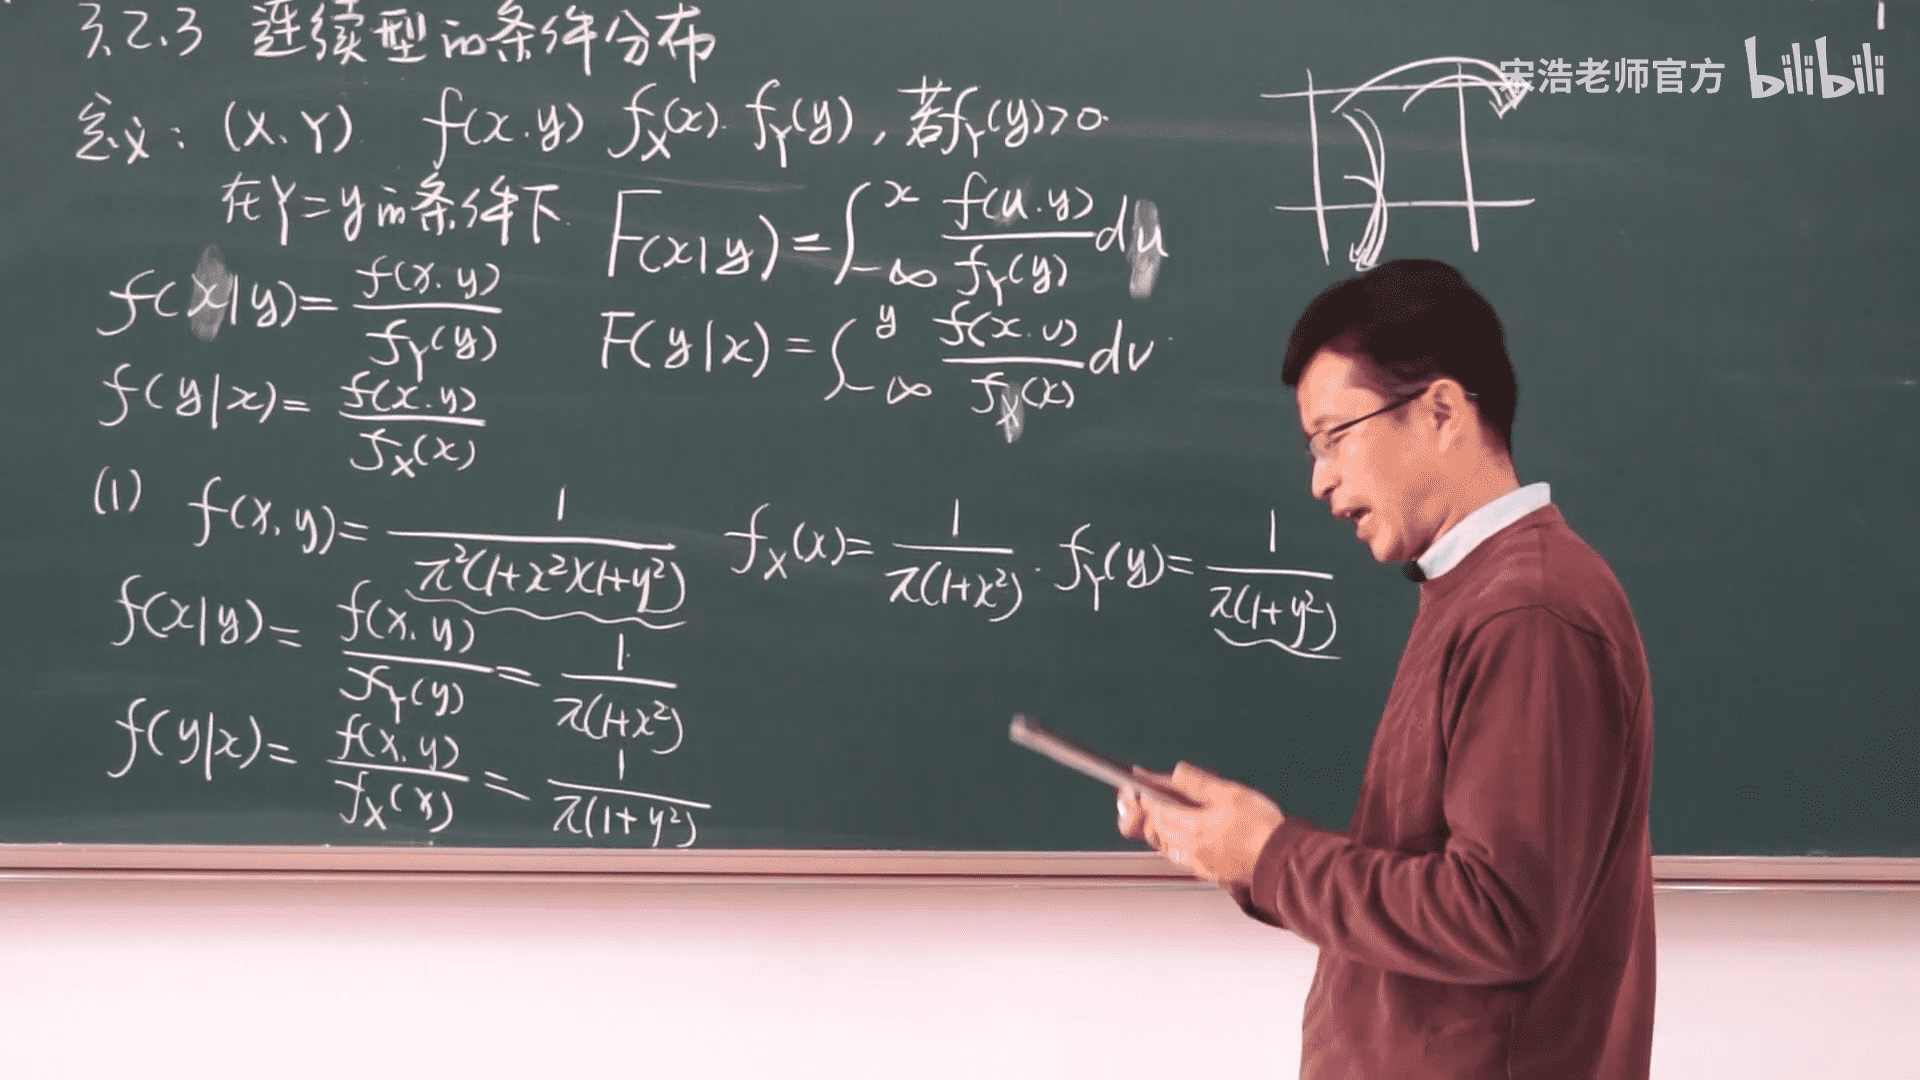 3.2.3 连续型的条件分布
宋浩老师官方 bilibili
定义: (X,Y) f(x,y) f_X(x) f_Y(y), 若f_Y(y)>0.
在Y=y的条件下 F(x|y)=∫_{-∞}^{x} f(u,y)/f_Y(y) du
f(x|y)= f(x,y)/f_Y(y)
F(y|x)=∫_{-∞}^{y} f(x,v)/f_X(x) dv
f(y|x)= f(x,y)/f_X(x)
(1) f(x,y)= 1/π²(1+x²)(1+y²) f_X(x)= 1/π(1+x²). f_Y(y)= 1/π(1+y²)
f(x|y)= f(x,y)/f_Y(y) = 1/π(1+x²)
f(y|x)= f(x,y)/f_X(x) = 1/π(1+y²)